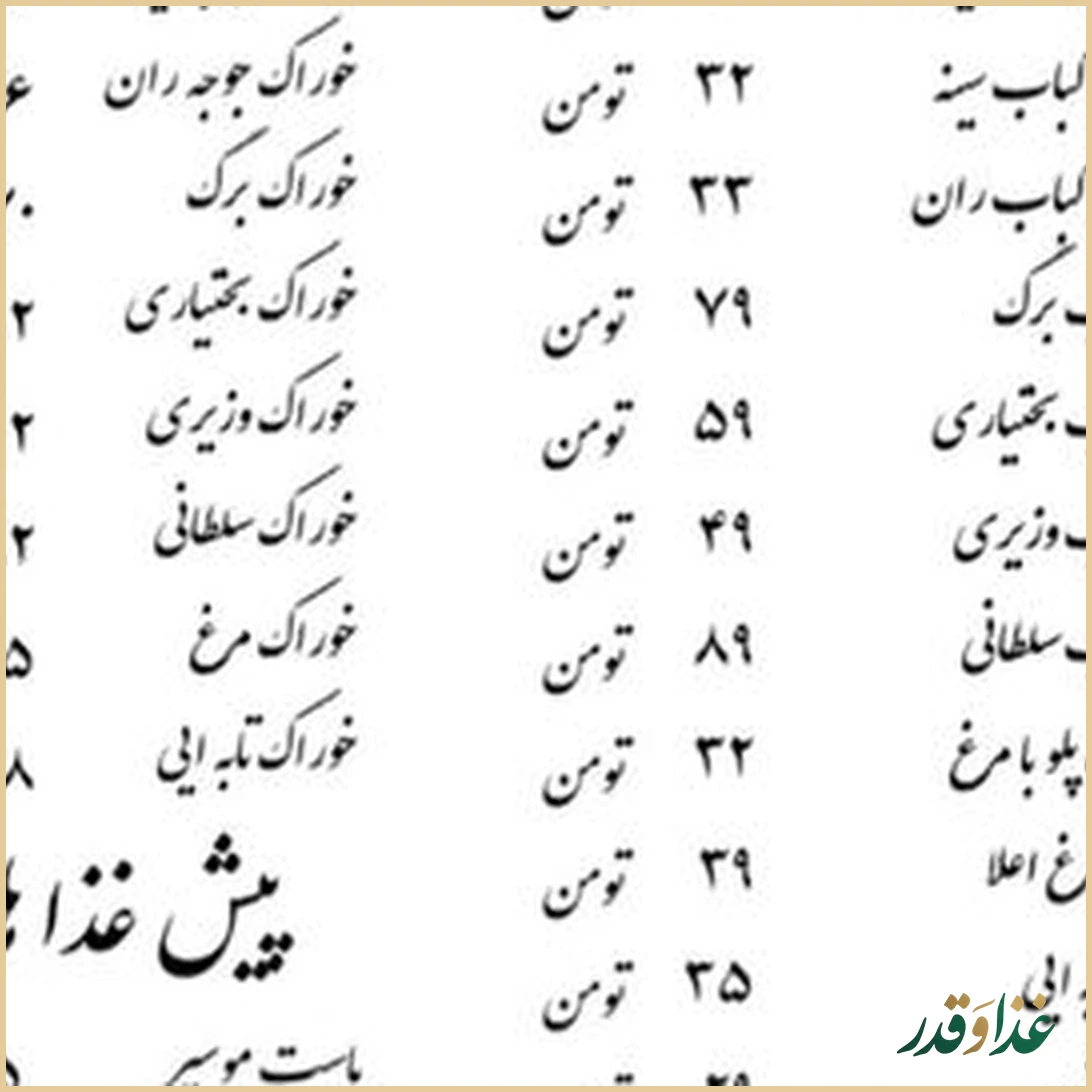 لباب سینه ۳۲ تومن
لباب ران ۳۳ تومن
برک ۷۹ تومن
بختیاری ۵۹ تومن
وزیری ۴۹ تومن
سلطانی ۸۹ تومن
پلو با مرغ ۳۲ تومن
غ اعلا ۳۹ تومن
ایی ۳۵ تومن
خوراک جوجه ران ۶
خوراک برک ۰
خوراک بختیاری ۲
خوراک وزیری ۲
خوراک سلطانی ۲
خوراک مرغ ۵
خوراک تابه ایی ۸
پیش غذا
ماست موسیر
غذا و قدر